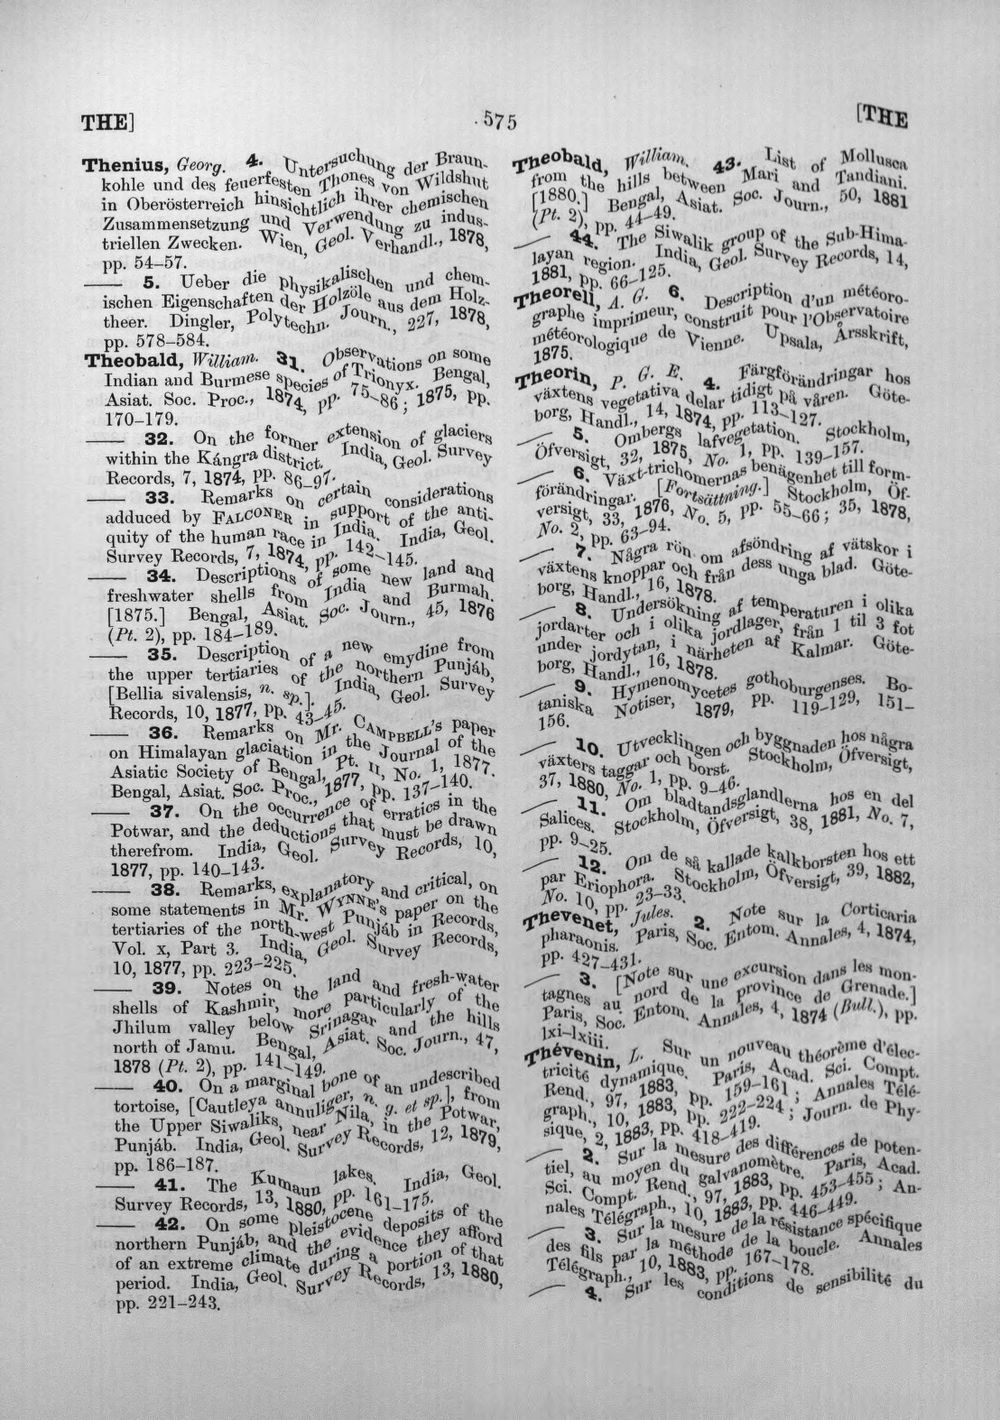 THE]
575
[THE
Thenius, Georg. 4. Untersuchung der Braun-
kohle und des feuerfesten Thones von Wildshut
in Oberösterreich hinsichtlich ihrer chemischen
Zusammensetzung und Verwendung zu indus-
triellen Zwecken. Wien, Geol. Verhandl., 1878,
pp. 54–57.
—— 5. Ueber die physikalischen und chem-
ischen Eigenschaften der Holzöle aus dem Holz-
theer. Dingler, Polytechn. Journ., 227, 1878,
pp. 578–584.
Theobald, William. 31. Observations on some
Indian and Burmese species of Trionyx. Bengal,
Asiat. Soc. Proc., 1874, pp. 75–86; 1875, pp.
170–179.
—— 32. On the former extension of glaciers
within the Kángra district. India, Geol. Survey
Records, 7, 1874, pp. 86–97.
—— 33. Remarks on certain considerations
adduced by FALCONER in support of the anti-
quity of the human race in India. India, Geol.
Survey Records, 7, 1874, pp. 142–145.
—— 34. Descriptions of some new land and
freshwater shells from India and Burmah.
[1875.] Bengal, Asiat. Soc. Journ., 45, 1876
(Pt. 2), pp. 184–189.
—— 35. Description of a new emydine from
the upper tertiaries of the northern Punjáb,
[Bellia sivalensis, n. sp.]. India, Geol. Survey
Records, 10, 1877, pp. 43–45.
—— 36. Remarks on Mr. CAMPBELL's paper
on Himalayan glaciation in the Journal of the
Asiatic Society of Bengal, Pt. II, No. 1, 1877.
Bengal, Asiat. Soc. Proc., 1877, pp. 137–140.
—— 37. On the occurrence of erratics in the
Potwar, and the deductions that must be drawn
therefrom. India, Geol. Survey Records, 10,
1877, pp. 140–143.
—— 38. Remarks, explanatory and critical, on
some statements in Mr. WYNNE's paper on the
tertiaries of the north-west Punjáb in Records,
Vol. x, Part 3. India, Geol. Survey Records,
10, 1877, pp. 223–225.
—— 39. Notes on the land and fresh-water
shells of Kashmir, more particularly of the
Jhilum valley below Srinagar and the hills
north of Jamu. Bengal, Asiat. Soc. Journ., 47,
1878 (Pt. 2), pp. 141–149.
—— 40. On a marginal bone of an undescribed
tortoise, [Cautleya annuliger, n. g. et sp.], from
the Upper Siwaliks, near Nila, in the Potwar,
Punjáb. India, Geol. Survey Records, 12, 1879,
pp. 186–187.
—— 41. The Kumaun lakes. India, Geol.
Survey Records, 13, 1880, pp. 161–175.
—— 42. On some pleistocene deposits of the
northern Punjáb, and the evidence they afford
of an extreme climate during a portion of that
period. India, Geol. Survey Records, 13, 1880,
pp. 221–243.
Theobald, William. 43. List of Mollusca
from the hills between Mari and Tandiani.
[1880.] Bengal, Asiat. Soc. Journ., 50, 1881
(Pt. 2), pp. 44–49.
—— 44. The Siwalik group of the Sub-Hima-
layan region. India, Geol. Survey Records, 14,
1881, pp. 66–125.
Theorell, A. G. 6. Description d'un météoro-
graphe imprimeur, construit pour l'Observatoire
météorologique de Vienne. Upsala, Årsskrift,
1875.
Theorin, P. G. E. 4. Färgförändringar hos
växtens vegetativa delar tidigt på våren. Göte-
borg, Handl., 14, 1874, pp. 113–127.
—— 5. Ombergs lafvegetation. Stockholm,
Öfversigt, 32, 1875, No. 1, pp. 139–157.
—— 6. Växt-trichomernas benägenhet till form-
förändringar. [Fortsättning.] Stockholm, Öf-
versigt, 33, 1876, No. 5, pp. 55–66; 35, 1878,
No. 2, pp. 63–94.
—— 7. Några rön om afsöndring af vätskor i
växtens knoppar och från dess unga blad. Göte-
borg, Handl., 16, 1878.
—— 8. Undersökning af temperaturen i olika
jordarter och i olika jordlager, från 1 til 3 fot
under jordytan, i närheten af Kalmar. Göte-
borg, Handl., 16, 1878.
—— 9. Hymenomycetes gothoburgenses. Bo-
taniska Notiser, 1879, pp. 119–129, 151–
156.
—— 10. Utvecklingen och byggnaden hos några
växters taggar och borst. Stockholm, Öfversigt,
37, 1880, No. 1, pp. 9–46.
—— 11. Om bladtandsglandlerna hos en del
Salices. Stockholm, Öfversigt, 38, 1881, No. 7,
pp. 9–25.
—— 12. Om de så kallade kalkborsten hos ett
par Eriophora. Stockholm, Öfversigt, 39, 1882,
No. 10, pp. 23–33.
Thevenet, Jules. 2. Note sur la Corticaria
pharaonis. Paris, Soc. Entom. Annales, 4, 1874,
pp. 427–431.
—— 3. [Note sur une excursion dans les mon-
tagnes au nord de la province de Grenade.]
Paris, Soc. Entom. Annales, 4, 1874 (Bull.), pp.
lxi–lxiii.
Thévenin, L. Sur un nouveau théorème d'élec-
tricité dynamique. Paris, Acad. Sci. Compt.
Rend., 97, 1883, pp. 159–161; Annales Télé-
graph., 10, 1883, pp. 222–224; Journ. de Phy-
sique, 2, 1883, pp. 418–419.
—— 2. Sur la mesure des différences de poten-
tiel, au moyen du galvanomètre. Paris, Acad.
Sci. Compt. Rend., 97, 1883, pp. 453–455; An-
nales Télégraph., 10, 1883, pp. 446–449.
—— 3. Sur la mesure de la résistance spécifique
des fils par la méthode de la boucle. Annales
Télégraph., 10, 1883, pp. 167–178.
—— 4. Sur les conditions de sensibilité du